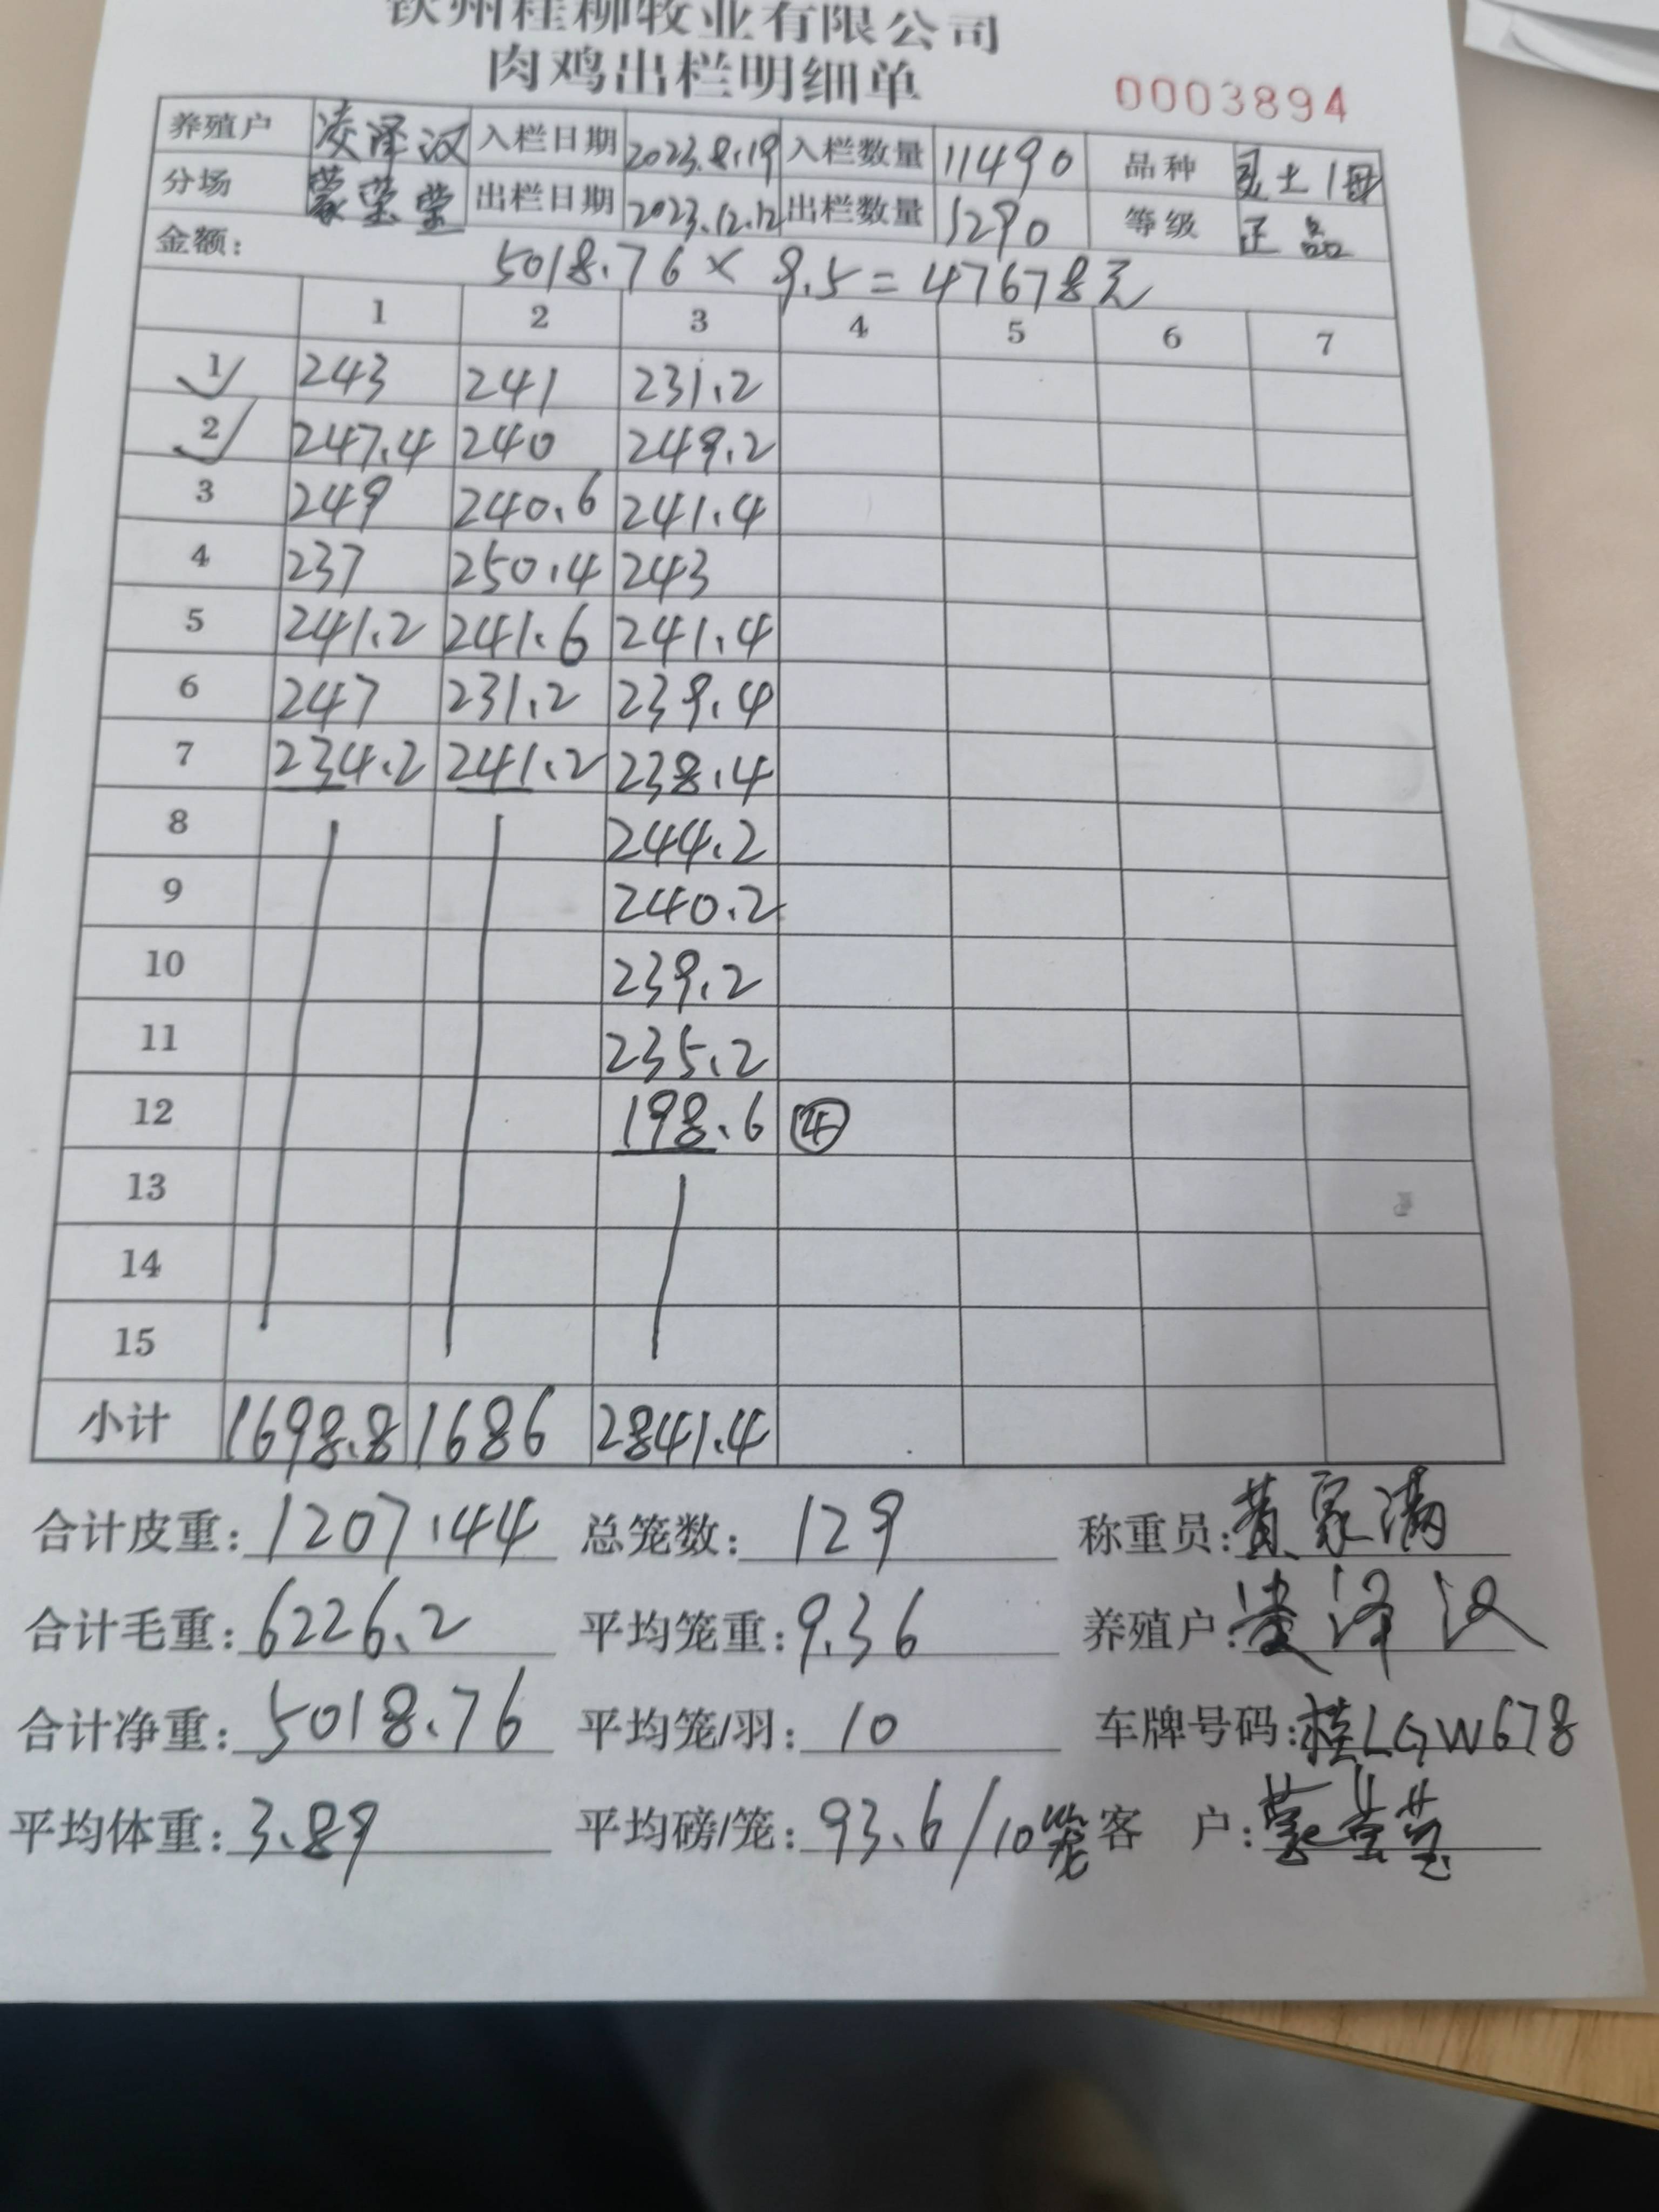 钦州桂柳牧业有限公司
肉鸡出栏明细单
0003894
养殖户 凌泽汉 入栏日期 2023.8.19 入栏数量 11490 品种 灵土1母
分场 蒙莹莹 出栏日期 2023.12.12 出栏数量 1290 等级 正品
金额: 5018.76 × 9.5 = 47678元
1 2 3 4 5 6 7
1 243 241 231.2
2 247.4 240 249.2
3 249 240.6 241.4
4 237 250.4 243
5 241.2 241.6 241.4
6 247 231.2 239.4
7 234.2 241.2 238.4
8 244.2
9 240.2
10 239.2
11 235.2
12 198.6 ④
13
14
15
小计 1698.8 1686 2841.4
合计皮重: 1207.44 总笼数: 129 称重员: 黄家满
合计毛重: 6226.2 平均笼重: 9.36 养殖户: 凌泽汉
合计净重: 5018.76 平均笼/羽: 10 车牌号码: 桂LGW678
平均体重: 3.89 平均磅/笼: 93.6/10笼 客 户: 蒙莹莹